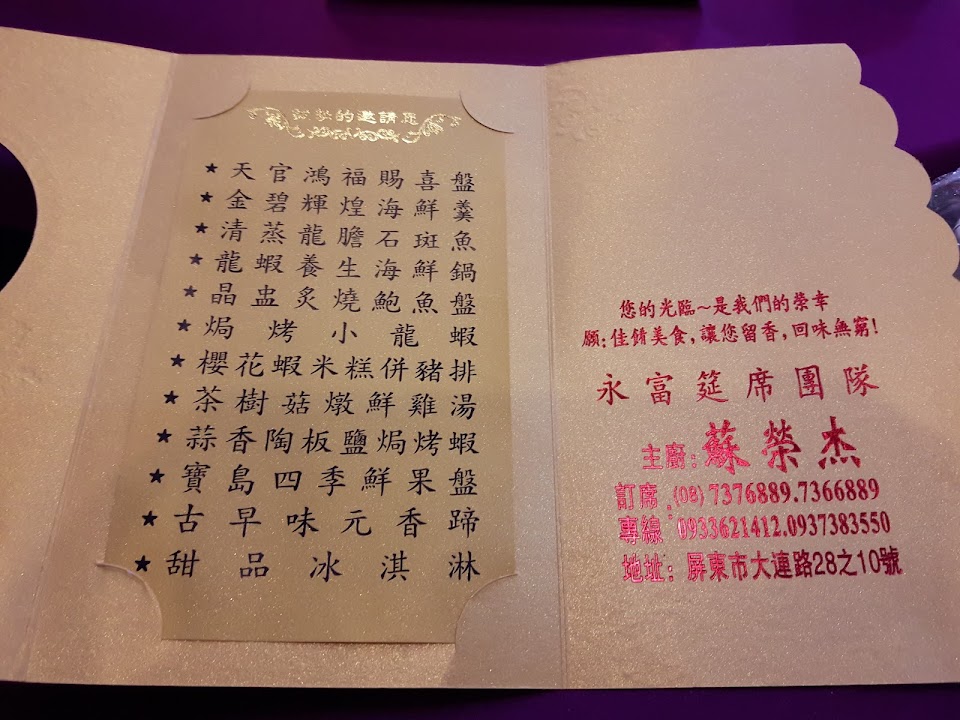 誠摯的邀請您
★天官鴻福賜喜盤
★金碧輝煌海鮮羹
★清蒸龍膽石斑魚
★龍蝦養生海鮮鍋
★晶盅炙燒鮑魚盤
★焗烤小龍蝦
★櫻花蝦米糕併豬排
★茶樹菇燉鮮雞湯
★蒜香陶板鹽焗烤蝦
★寶島四季鮮果盤
★古早味元香蹄
★甜品冰淇淋
您的光臨~是我們的榮幸
願:佳餚美食,讓您留香,回味無窮!
永富筵席團隊
主廚:蘇榮杰
訂席:(08)7376889.7366889
專線:0933621412.0937383550
地址:屏東市大連路28之10號